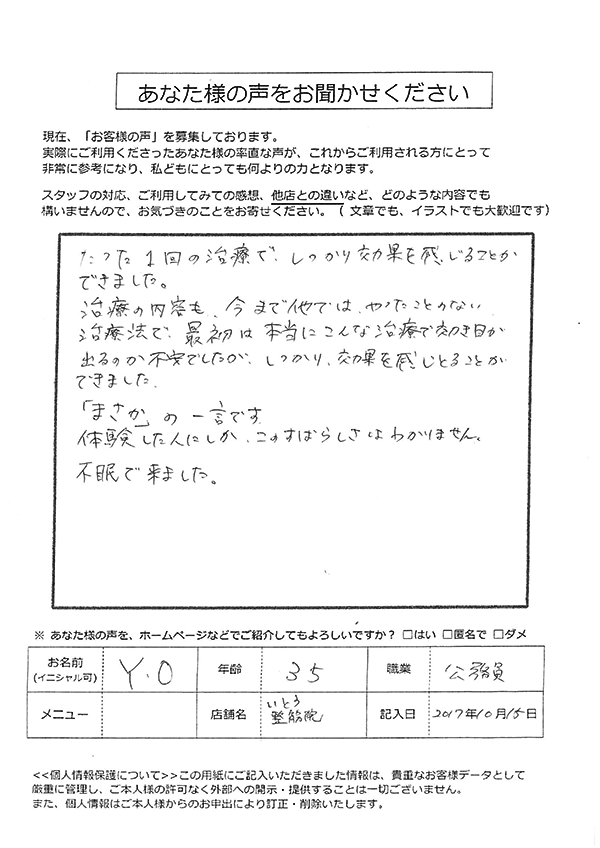 あなた様の声をお聞かせください
現在、「お客様の声」を募集しております。
実際にご利用くださったあなた様の率直な声が、これからご利用される方にとって
非常に参考になり、私どもにとっても何よりの力となります。
スタッフの対応、ご利用してみての感想、他店との違いなど、どのような内容でも
構いませんので、お気づきのことをお寄せください。（ 文章でも、イラストでも大歓迎です）
たった1回の治療で、しっかり効果を感じることが
できました。
治療の内容も、今まで他では、やったことのない
治療法で、最初は本当にこんな治療で効き目が
出るのか不安でしたが、しっかり、効果を感じとることが
できました。
「まさか」の一言です
体験した人にしか、このすばらしさはわかりません。
不眠で来ました。
※ あなた様の声を、ホームページなどでご紹介してもよろしいですか？ □はい □匿名で □ダメ
お名前 (イニシャル可) Y.O 年齢 35 職業 公務員
メニュー 店舗名 いとう整筋院 記入日 2017年10月15日
<<個人情報保護について>>この用紙にご記入いただきました情報は、貴重なお客様データとして
厳重に管理し、ご本人様の許可なく外部への開示・提供することは一切ございません。
また、個人情報はご本人様からのお申出により訂正・削除いたします。